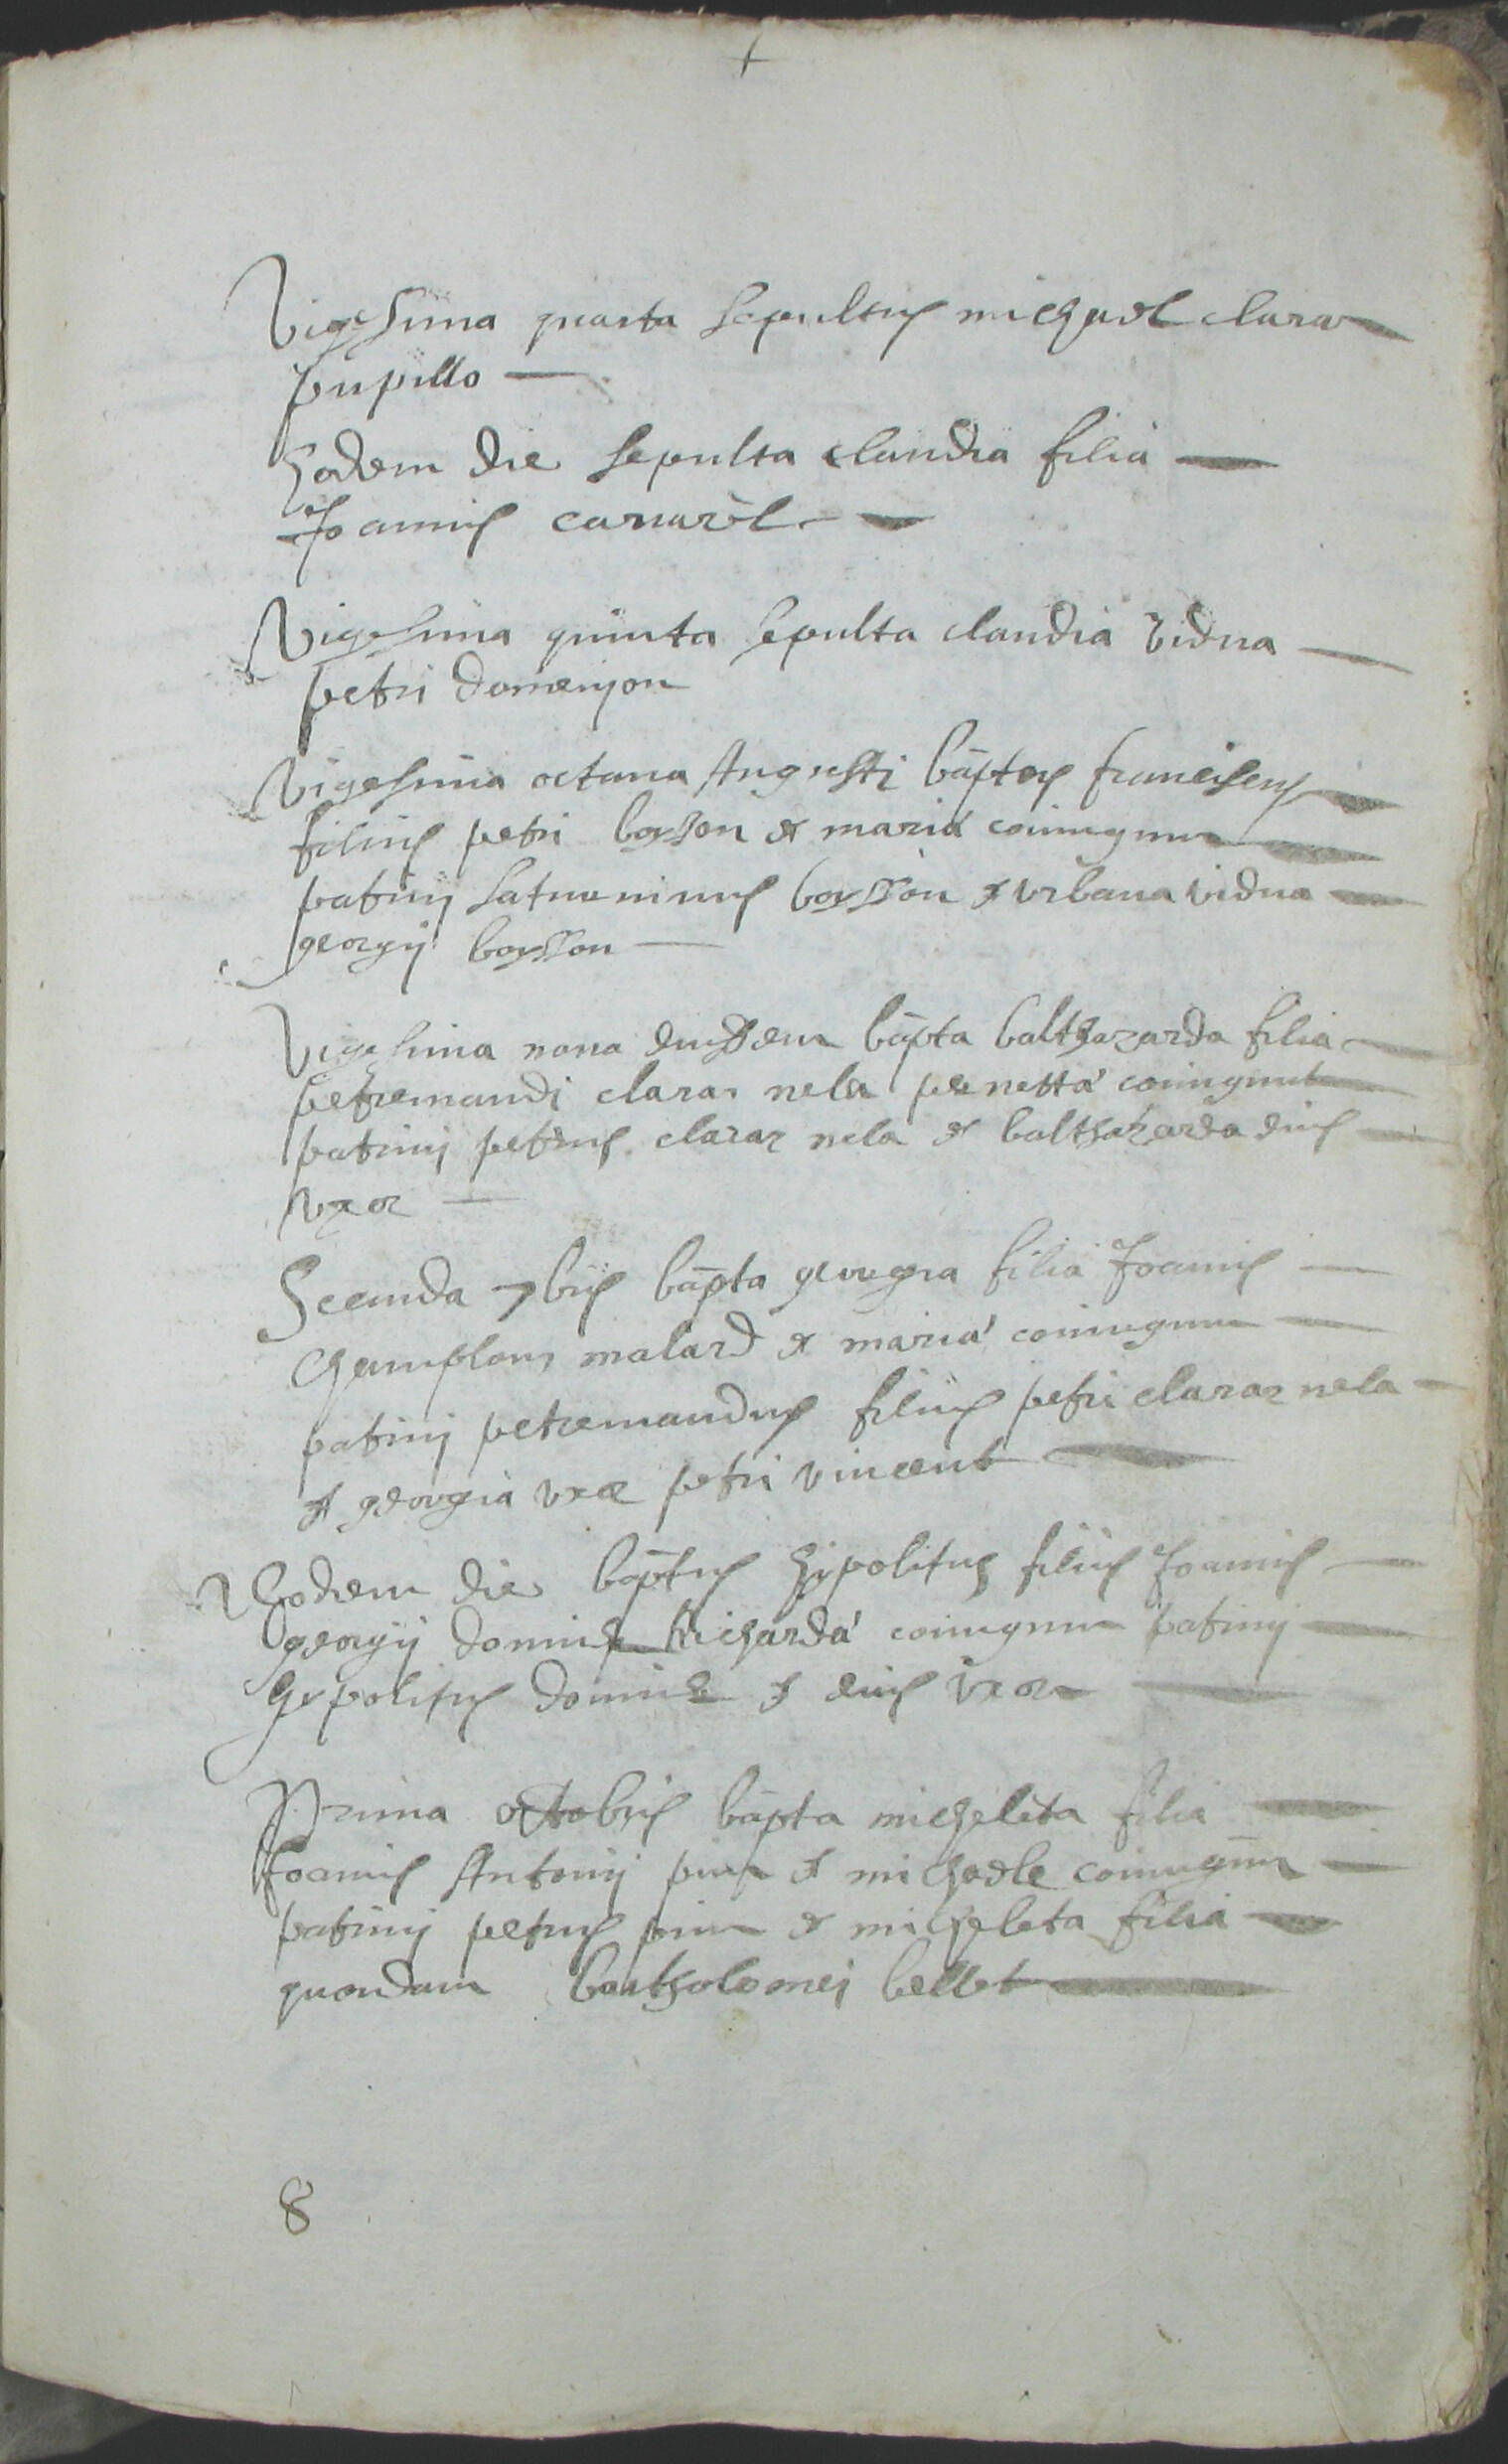 +
Vigesima quarta sepultus michael claraz
pupillo
Eadem die sepulta claudia filia
Joannis
Vigesima quinta sepulta claudia vidua
petri domenjon
Vigesima octava Augusti bāptus franciscus
filius petri bosson & maria coniugum
patrinj saturninus bosson & urbana vidua
georgij bosson
Vigesima nona eiusdem bāpta balthazarda filia
petremandi claraz nela penetta coniugum
patrinj petrus claraz nela & balthazarda eius
uxor
Secunda 7bris bāpta georgia filia Joannis
malard & maria coniugum
patrinj petremandus filius petri claraz nela
& georgia uxor petri vincent
Eodem die bāptus hipolitus filius Joannis
georgij richarda coniugum patrinj
hypolitus & eius uxor
Prima octobris bāpta micheleta filia
Joannis Antonij & michaele coniugum
patrinj petrus & micheleta filia
quondam bartholomej bellet
8